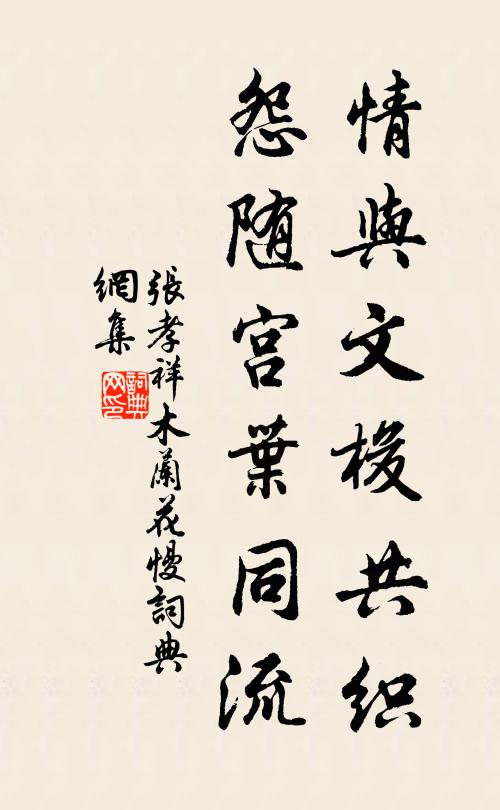 情與文梭共織
怨随宫葉同流
張孝祥木蘭花慢詞典
網集
詞典
网印